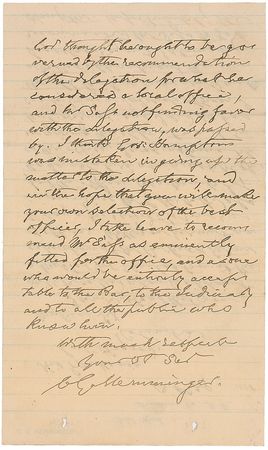 Gov. thought he ought to be gov
erned by the recommendation
of the delegation for what he
considered a local office,
and Mr Eaſs not finding favor
with the delegation, was passed
by. I think Gov. Hampton
was mistaken in giving up the
matter to the delegation, and
in the hope that you will make
your own selection of the best
officer, I take leave to recom
mend Mr as eminently
fitted for the office, and as one
who would be entirely accep
table to the Bar, to the Judiciary
and to all the public who
know him.
With much respect
Your Ob Ser
C G Memminger.